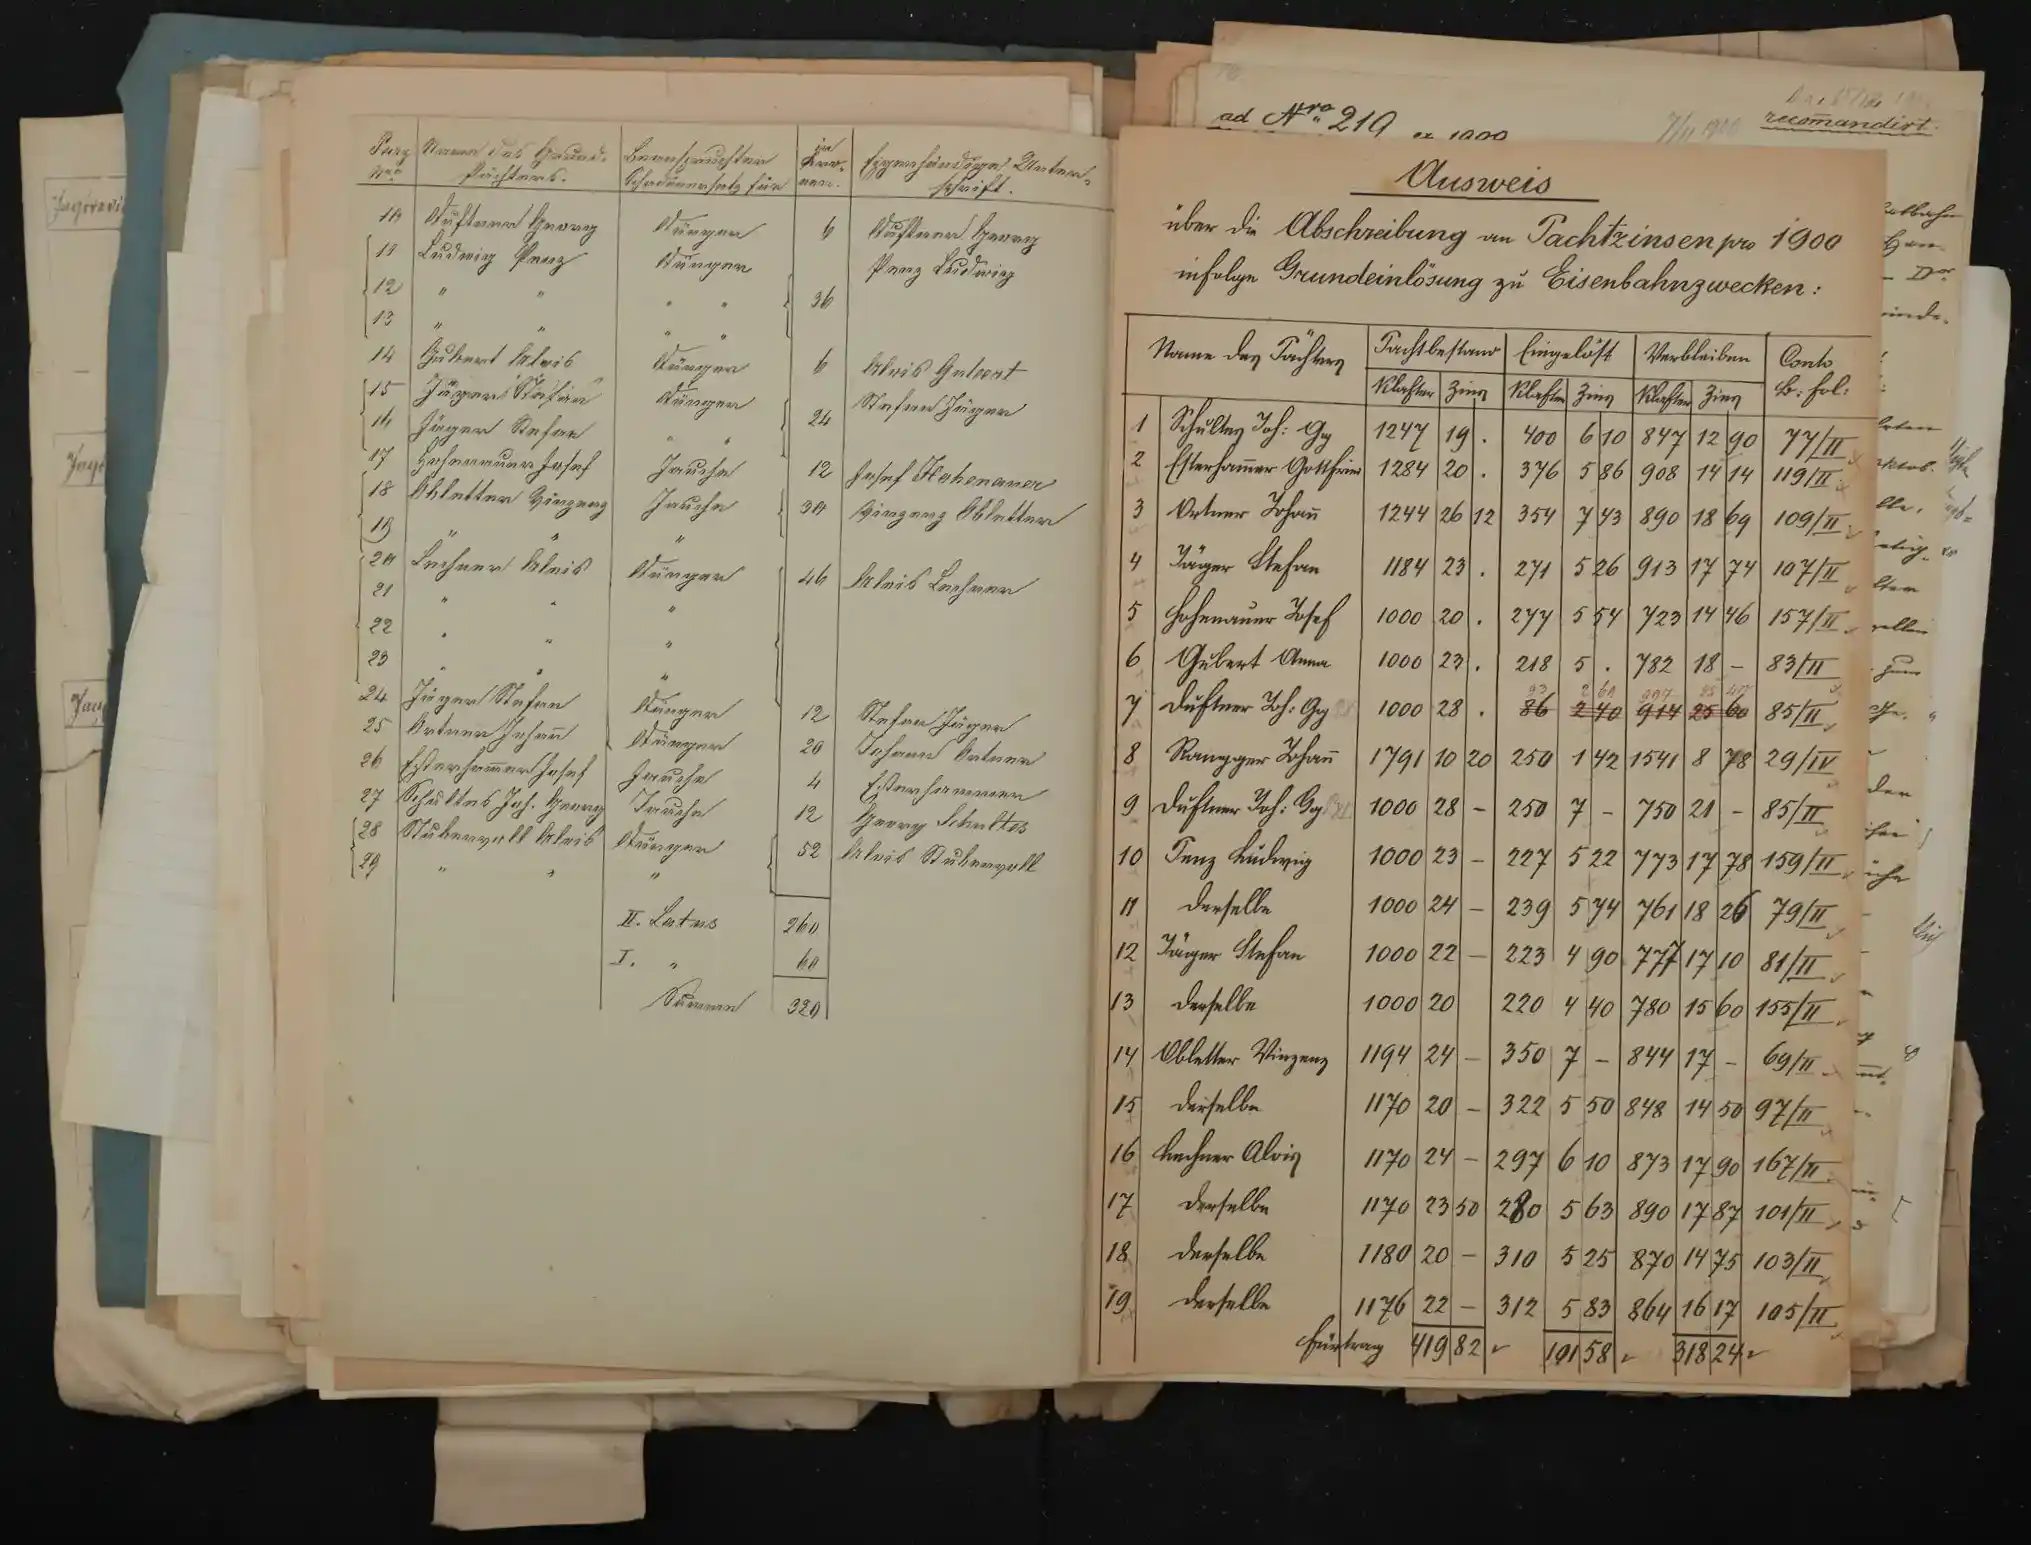 Parz Nro | Name des Grund-Pächters. | Beanspruchter Schadenersatz für | in Kro-nen. | Eigenhändige Unter-schrift.
10 | Duftner Georg | Dünger | 6 | Duftner Georg
11 | Ludwig Penz | Dünger | | Penz Ludwig
12 | " " | " " | 36
13 | " " | " "
14 | Gubert Alois | Dünger | 6 | Alois Gubert
15 | Jäger Stefan | Dünger | | Stefan Jäger
16 | Jäger Stefan | " " | 24
17 | Hohenauer Josef | Jauche | 12 | Josef Hohenauer
18 | Obletter Vinzenz | Jauche | 30 | Vinzenz Obletter
19 | " " | "
20 | Lechner Alois | Dünger | 46 | Alois Lechner
21 | " " | "
22 | " " | "
23 | " " | "
24 | Jäger Stefan | Dünger | 12 | Stefan Jäger
25 | Ortner Johañ | Dünger | 20 | Johann Ortner
26 | Esterham̅er Josef | Jauche | 4 | Esterhammer
27 | Schultes Joh. Georg | Jauche | 12 | Georg Schultes
28 | Stubenvoll Alois | Dünger | 52 | Alois Stubenvoll
29 | " " | "
II. Latus 260
I. " 60
Summe 320
ad Nro 219 ex 1900
7/II 1900
recom̅andirt.
Ausweis
über die Abschreibung an Pachtzinsen pro 1900
infolge Grundeinlösung zu Eisenbahnzwecken:
Name des Pächters | Pachtbestand | Eingelöst | Verbleiben | Conto
Klafter | Zins | Klafter | Zins | Klafter | Zins | B: fol:
1 | Schultes Joh: Gg | 1247 | 19 . | 400 | 6 10 | 847 | 12 90 | 77/II
2 | Esterham̅er Gottfried | 1284 | 20 . | 376 | 5 86 | 908 | 14 14 | 119/II
3 | Ortner Johañ | 1244 | 26 12 | 354 | 7 43 | 890 | 18 69 | 109/II
4 | Jäger Stefan | 1184 | 23 . | 271 | 5 26 | 913 | 17 74 | 107/II
5 | Hohenauer Josef | 1000 | 20 . | 277 | 5 54 | 723 | 14 46 | 157/II
6 | Gubert Anna | 1000 | 23 . | 218 | 5 . | 782 | 18 – | 83/II
93 2 60 907 25 40
7 | Duftner Joh: Gg | 1000 | 28 . | 86 | 2 40 | 914 | 25 60 | 85/II
8 | Rangger Johañ | 1791 | 10 20 | 250 | 1 42 | 1541 | 8 78 | 29/IV
9 | Duftner Joh: Gg | 1000 | 28 – | 250 | 7 – | 750 | 21 – | 85/II
10 | Penz Ludwig | 1000 | 23 – | 227 | 5 22 | 773 | 17 78 | 159/II
11 | derselbe | 1000 | 24 – | 239 | 5 74 | 761 | 18 26 | 79/II
12 | Jäger Stefan | 1000 | 22 – | 223 | 4 90 | 777 | 17 10 | 81/II
13 | derselbe | 1000 | 20 | 220 | 4 40 | 780 | 15 60 | 155/II
14 | Obletter Vinzenz | 1194 | 24 – | 350 | 7 – | 844 | 17 – | 69/II
15 | derselbe | 1170 | 20 – | 322 | 5 50 | 848 | 14 50 | 97/II
16 | Lechner Alois | 1170 | 24 – | 297 | 6 10 | 873 | 17 90 | 167/II
17 | derselbe | 1170 | 23 50 | 280 | 5 63 | 890 | 17 87 | 101/II
18 | derselbe | 1180 | 20 – | 310 | 5 25 | 870 | 14 75 | 103/II
19 | derselbe | 1176 | 22 – | 312 | 5 83 | 864 | 16 17 | 105/II
Fürtrag 419 82 101 58 318 24